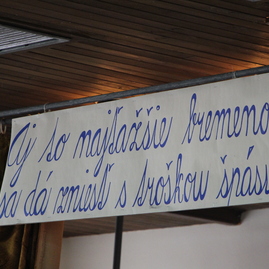 Aj to najťažšie bremeno
sa dá zniesť s troškou špás